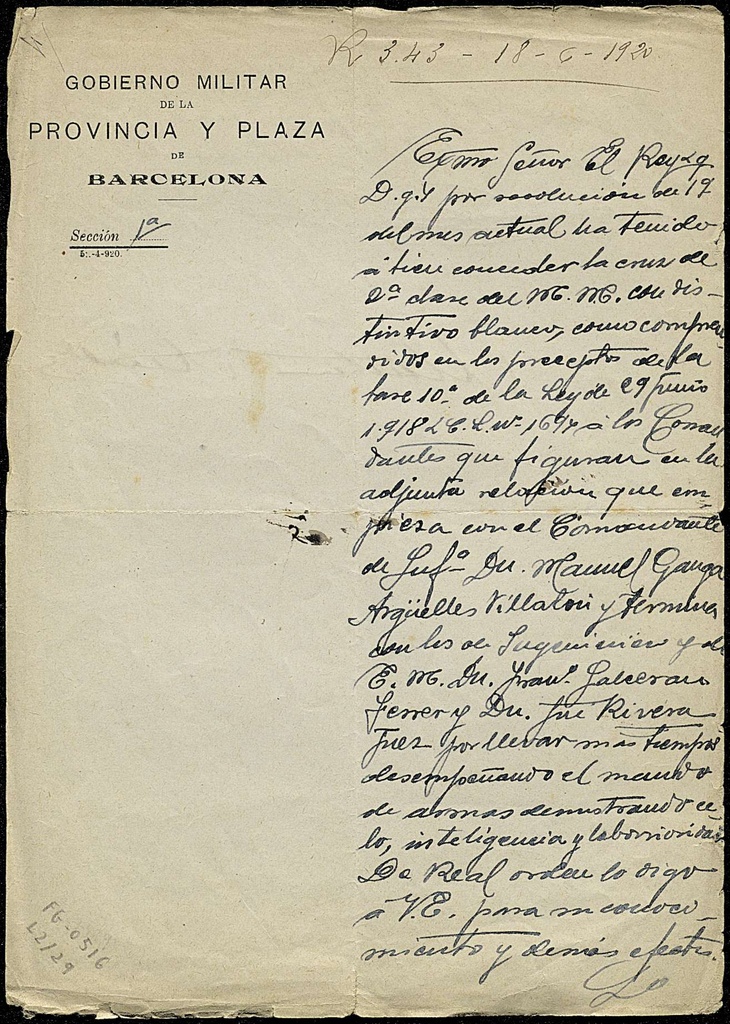 R 343 - 18 - 6 - 1920
GOBIERNO MILITAR
DE LA
PROVINCIA Y PLAZA
DE
BARCELONA
Sección 1ª
5:.-4-920.
Exmo Señor El Rey q
D. g. y por resolución de 17
del mes actual ha tenido
á bien conceder la cruz de
2ª clase del M. M. con dis-
tintivo blanco, como compren
didos en los preceptos de la
base 10ª de la Ley de 29 Junio
1.918 C. L. nº 169 á los Coman
dantes que figuran en la
adjunta relación que em-
pieza con el Comandante
de Infª Dn. Manuel Ganga
Argüelles Villalón y termina
con los de Ingenieros y de
E. M. Dn. Franº Galceran
Ferrer y Dn. José Rivera
Juez por llevar mas tiempos
desempeñando el mando
de armas demostrando ce-
lo, inteligencia y laboriosidad
De Real orden lo digo
á V. E. para su conoci-
miento y demás efectos.
Lo
FG-0516
L2/29